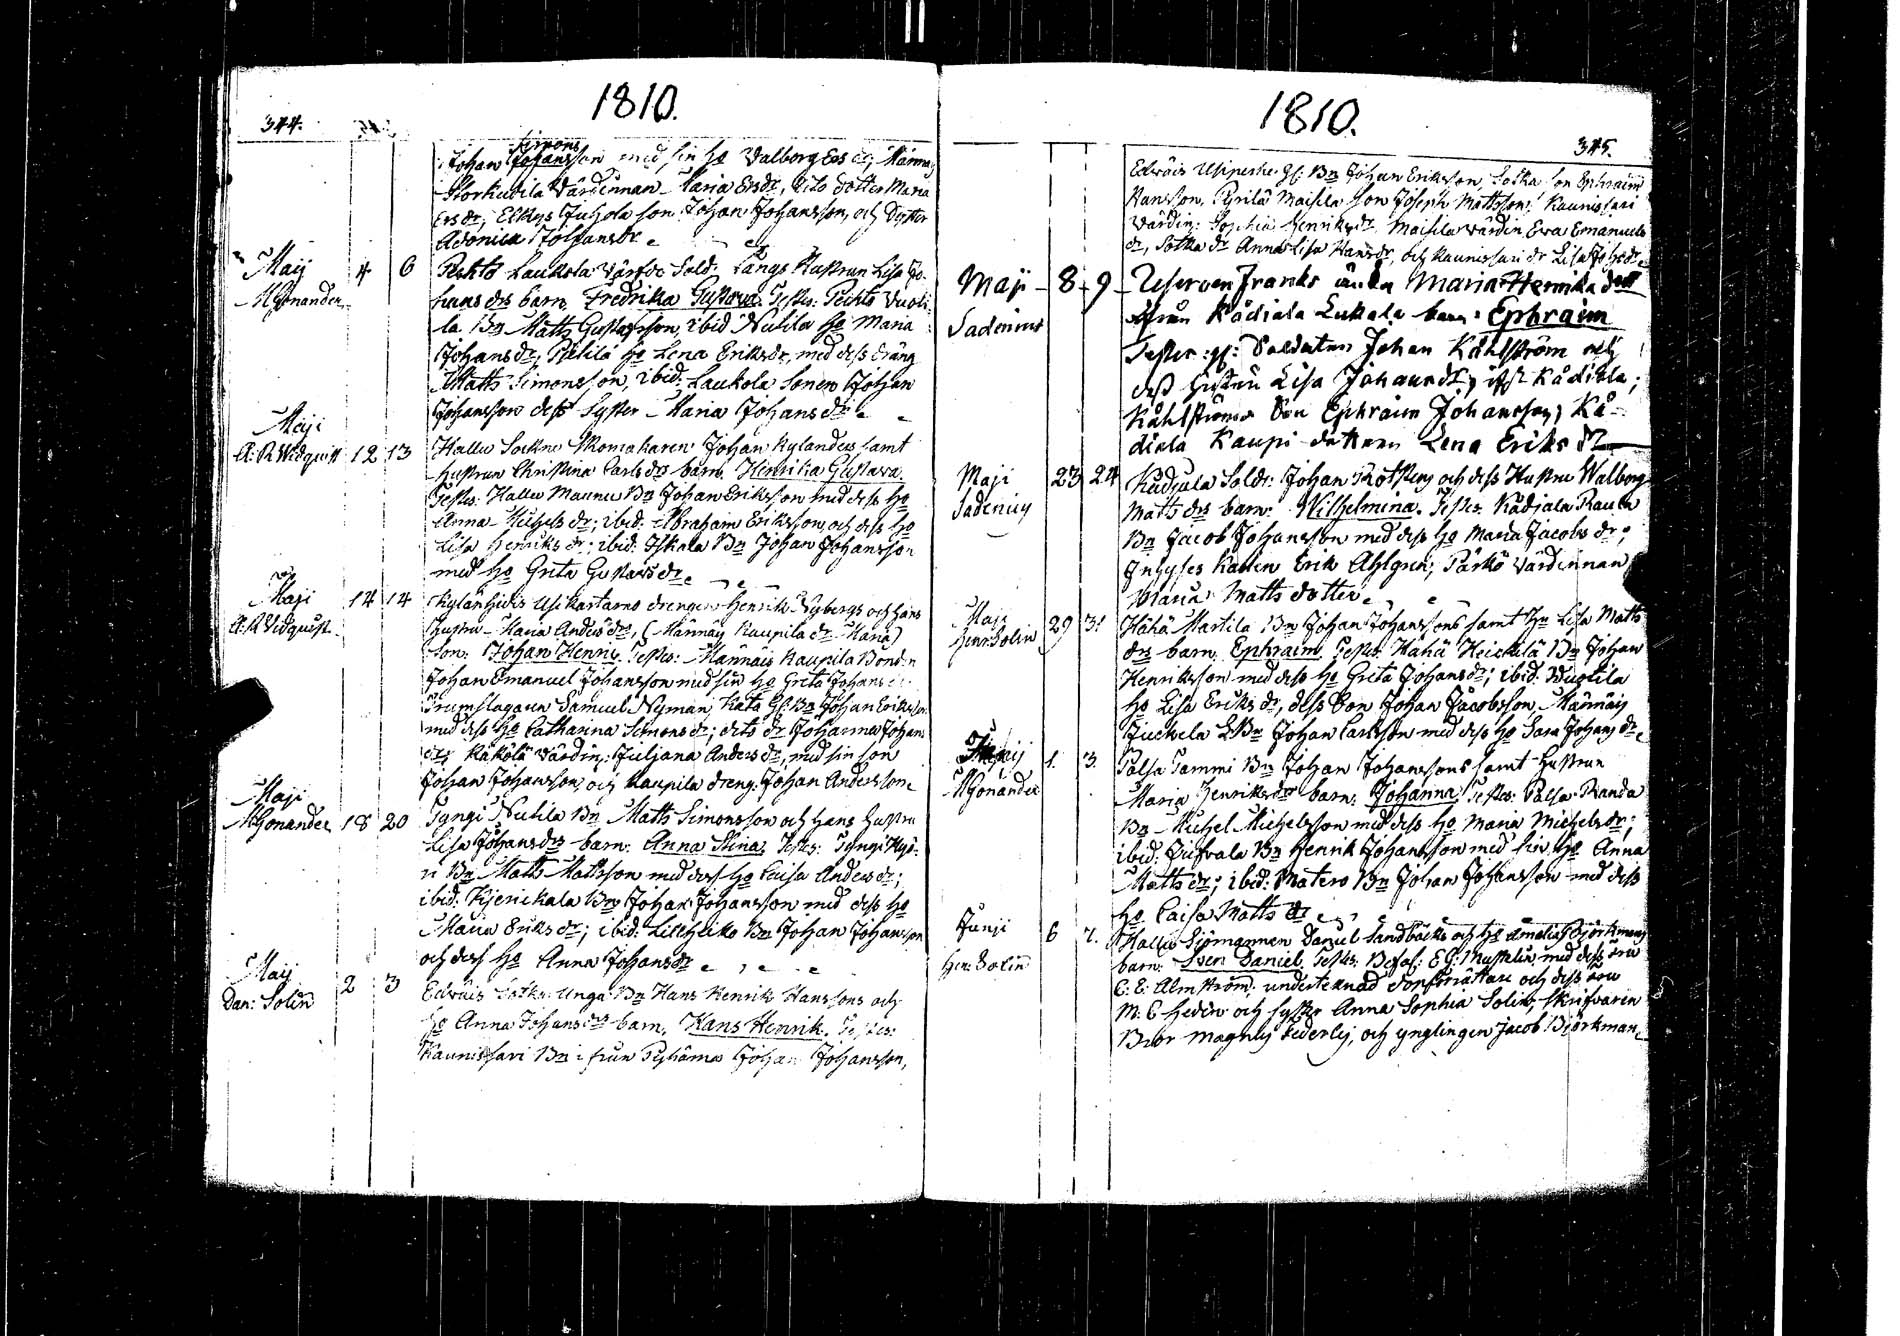 1810.
344.
Simons
Johan Johansson med sin ho Valborg Ers dr, Männäs
Storkubila Värdinnan Maria Ersdr, dito dotter Maria
Ers dr, Elkys Juhola son Johan Johansson, och dotter
Johansdr.
Maij 4 6 Pehto Laukola Sold: Långs Hustrun Lisa Jo-
MGonander hans drs barn, Fredrika Gustava. Testes: Pehto Vuoti-
la Bn Matts Gustafsson, ibid Nulila ho Maria
Johans dr, ho Lena Eriksdr, med dess dräng
Matts Simonsson, ibid: Laukola Sonen Johan
Johansson dess Syster Maria Johans dr
Maji
A: R Widquist 12 13 Hallu Sockne Skomakaren Johan Rylanders samt
hustrun Christina Carls drs barn. Henrica Gustava.
Testes: Hallu Maunu Bn Johan Eriksson med dess ho
Anna Michels dr; ibid: Abraham Eriksson och dess ho
Lisa Henriks dr; ibid: Iskala Bn Johan Johansson
med ho Greta Gustafs dr.
Maji 14 14 Usikartano drengen Henrik Nybergs och hans
A: R Widquist. hustru Maria Anders drs, (Männäs Kaupila dr Maria)
son: Johan Henric. Testes: Männäis Kaupila Bonden
Johan Emanuel Johansson med sin ho Greta Johans dr
Trumslagaren Samuel Nyman, Kata Gl: Bn Johan Eriksson
med dess ho Catharina Simons dr; dito dr Johanna Johans
dr; Käkölä Värdin: Juliana Anders dr, med sin son
Johan Johansson, och Kaupila dreng: Johan Andersson
Maji
MGonander 18 20 Tyngi Nulila Bn Matts Simonsson och hans hustru
Lisa Johansdrs barn: Anna Stina. Testes: Tyngi
Bn Matts Mattsson med dess ho Caisa Anders dr;
ibid: Bn Johan Johansson med dess ho
Maria Eriks dr; ibid: Bn Johan Johansson
och dess ho Anna Johansdr
Maij 2 3 Edväis Sotka Unga Bn Hans Henrik Hanssons och
Dan: Solin ho Anna Johans drs barn, Hans Henrik. Testes:
Kaunissari Bn ifrån Pyhäma Johan Johansson,
1810.
345.
Edväis Usiperhe Gl: Bn Johan Eriksson, Sotka son Ephraim
Hansson, Pyrilä Maisila son Joseph Mattsson, Kaunissari
Värdin: Sophia Henriks dr Maisila Värdin Eva Emanuels
dr, Sotka dr Anna Lisa Hansdr, och Kaunissari dr Lisa Johs dr
Maji 8 9 Franks änka Maria Henriks dotter
Sadenius ifrån Kädiala Lukala barn: Ephraim
Testes: gl: Soldaten Johan Kåhlström och
dess Hustru Lisa Johansdr, ifr: Kådiala;
Kåhlströms Son Ephraim Johansson, Kå-
diala Kaupi dottern Lena Eriks dr
Maji 23 24 Kådjala Soldr: Johan och dess Hustru Walborg
Sadenius Matts drs barn: Wilhelmina. Testes: Kådjala Rauta
Bn Jacob Johansson med dess ho Maria Jacobs dr;
Erik Ahlgren, Pärkö Värdinnan
Maria Matts dotter.
Maji 29 31 Hähä Martila Bn Johan Johanssons samt Hu Lisa Matts
Henr Solin drs barn Ephraim Testes: Hähä Heickilä Bn Johan
Henriksson med dess ho Greta Johansdr; ibid: Wugtila
ho Lisa Eriks dr, dess Son Johan Jacobsson, Männäis
Bn Johan Carlsson med dess ho Sara Johans dr
Junij 1. 3. Palsa Tammi Bn Johan Johanssons samt Hustrun
MGonander Maria Henriksdrs barn: Johanna Testes: Palsa Randa
Bn Michel Michelsson med dess ho Maria Michelsdr;
ibid: Jufvala Bn Henrik Johansson med sin ho Anna
Matts dr; ibid: Matero Bn Johan Johansson med dess
ho Caisa Matts dr
Junij 6 7. Hallu Sjömannen Daniel Sandbäcks och ho Amelia Björkmans
Hen: Solin barn: Sven Daniel. Testes: EG: Mustelin med dess fru
C: E: Almström: undertecknad Dopförrättare och dess fru
M: C Hedén och syster Anna Sophia Solin, skrifvaren
Bror Magnus Federley, och ynglingen Jacob Björkman